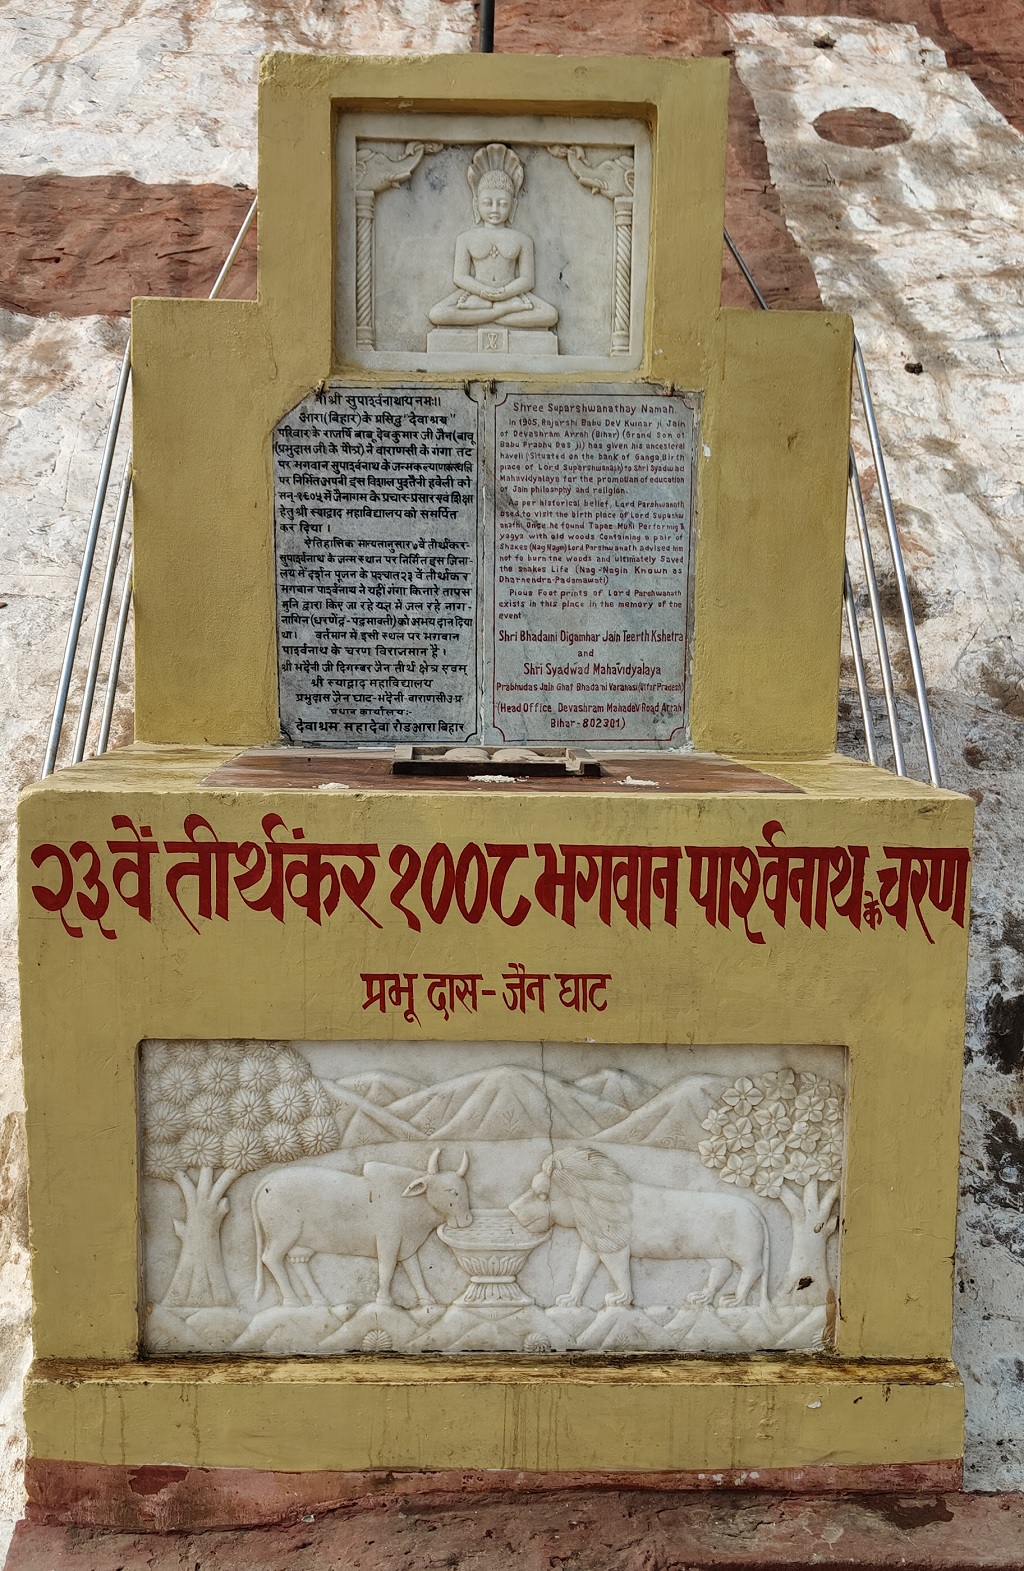 ।।श्री सुपार्श्वनाथाय नमः।।
आरा(बिहार)के प्रसिद्ध "देवाश्रम"
परिवार के राजर्षि बाबू देवकुमार जी जैन(बाबू
(प्रभुदास जी के पौत्र) ने वाराणसी के गंगा तट
पर भगवान सुपार्श्वनाथ के जन्म कल्याणकस्थलि
पर निर्मित अपनी इस विशाल पुश्तैनी हवेली को
सन्-१९०५ में जैनागम के प्रचार-प्रसार एवं शिक्षा
हेतु श्री स्याद्वाद महाविद्यालय को समर्पित
कर दिया ।
ऐतिहासिक मान्यतानुसार ७वें तीर्थंकर-
सुपार्श्वनाथ के जन्म स्थान पर निर्मित इस जिना-
लय में दर्शन पूजन के पश्चात २३ वें तीर्थंकर
भगवान पार्श्वनाथ ने यहीं गंगा किनारे तापस
मुनि द्वारा किए जा रहे यज्ञ में जल रहे नाग-
नागिन(धरणेंद्र-पद्मावती)को अभय दान दिया
था। वर्तमान में इसी स्थल पर भगवान
पार्श्वनाथ के चरण विराजमान है ।
श्री भदैनी जी दिगम्बर जैन तीर्थ क्षेत्र एवम्
श्री स्याद्वाद महाविद्यालय
प्रभुदास जैन घाट-भदैनी-वाराणसी उ.प्र
प्रधान कार्यालय:-
देवाश्रम महादेवा रोड आरा बिहार
Shree Suparshwanathay Namah.
in 1905, Rajarshi Babu Dev Kumar ji Jain
of Devashram Arrah (Bihar) (Grand Son of
Babu Prabhu Das ji) has given his uncesteral
haveli (Situated on the bank of Ganga,Birth
place of Lord Suparshwanath) to Shri Syadwad
Mahavidyalaya for the promotion of education
of Jain philosphy and religion.
As per historical belief, Lord Parshwanath
used to visit the birth place of Lord Supashw
anath. Once he found Tapas Muni Performig a
yagya with old woods Containing a pair of
Snakes (Nag Nagin) Lord Parshwanath advised him
not to burn the woods and ultimately Saved
the snakes Life (Nag-Nagin Known as
Dharnendra-Padamawati)
Pious Foot prints of Lord Parshwanath
exists in this place in the memory of the
event.
Shri Bhadaini Digamhar Jain Teerth Kshetra
and
Shri Syadwad Mahavidyalaya
Prabhudas Jain Ghat Bhadaini Varanasi(Uttar Pradesh)
(Head Office, Devashram Mahadev Road Arrah
Bihar-802301)
२३वें तीर्थंकर १००८ भगवान पार्श्वनाथ के चरण
प्रभू दास-जैन घाट